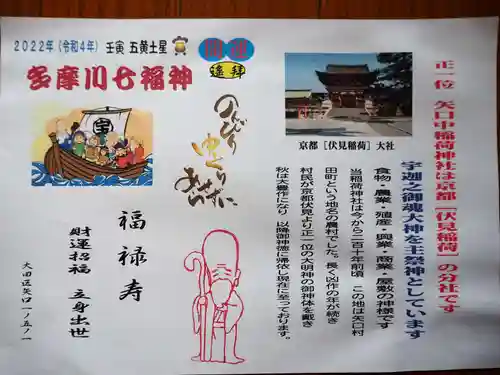 2022年(令和4年) 壬寅 五黄土星
開運
遙拝
多摩川七福神
宝
のんびり
ゆらり
福禄寿
財運招福 立身出世
大田区矢口1ノ5ノ1
京都[伏見稲荷]大社
正一位 矢口中稲荷神社は京都「伏見稲荷」の分社です
宇迦之御魂大神を主祭神としています
食物・農業・殖産・興業・商業・屋敷の神様です
当稲荷神社は今から二百十年前頃 この地は矢口村
田町という地名の農村でした。長く凶作の年が続き
村民が京都伏見より正一位の大明神の御神体を戴き
秋は大豊作になり 以降御神徳に帰依し現在に至っております。